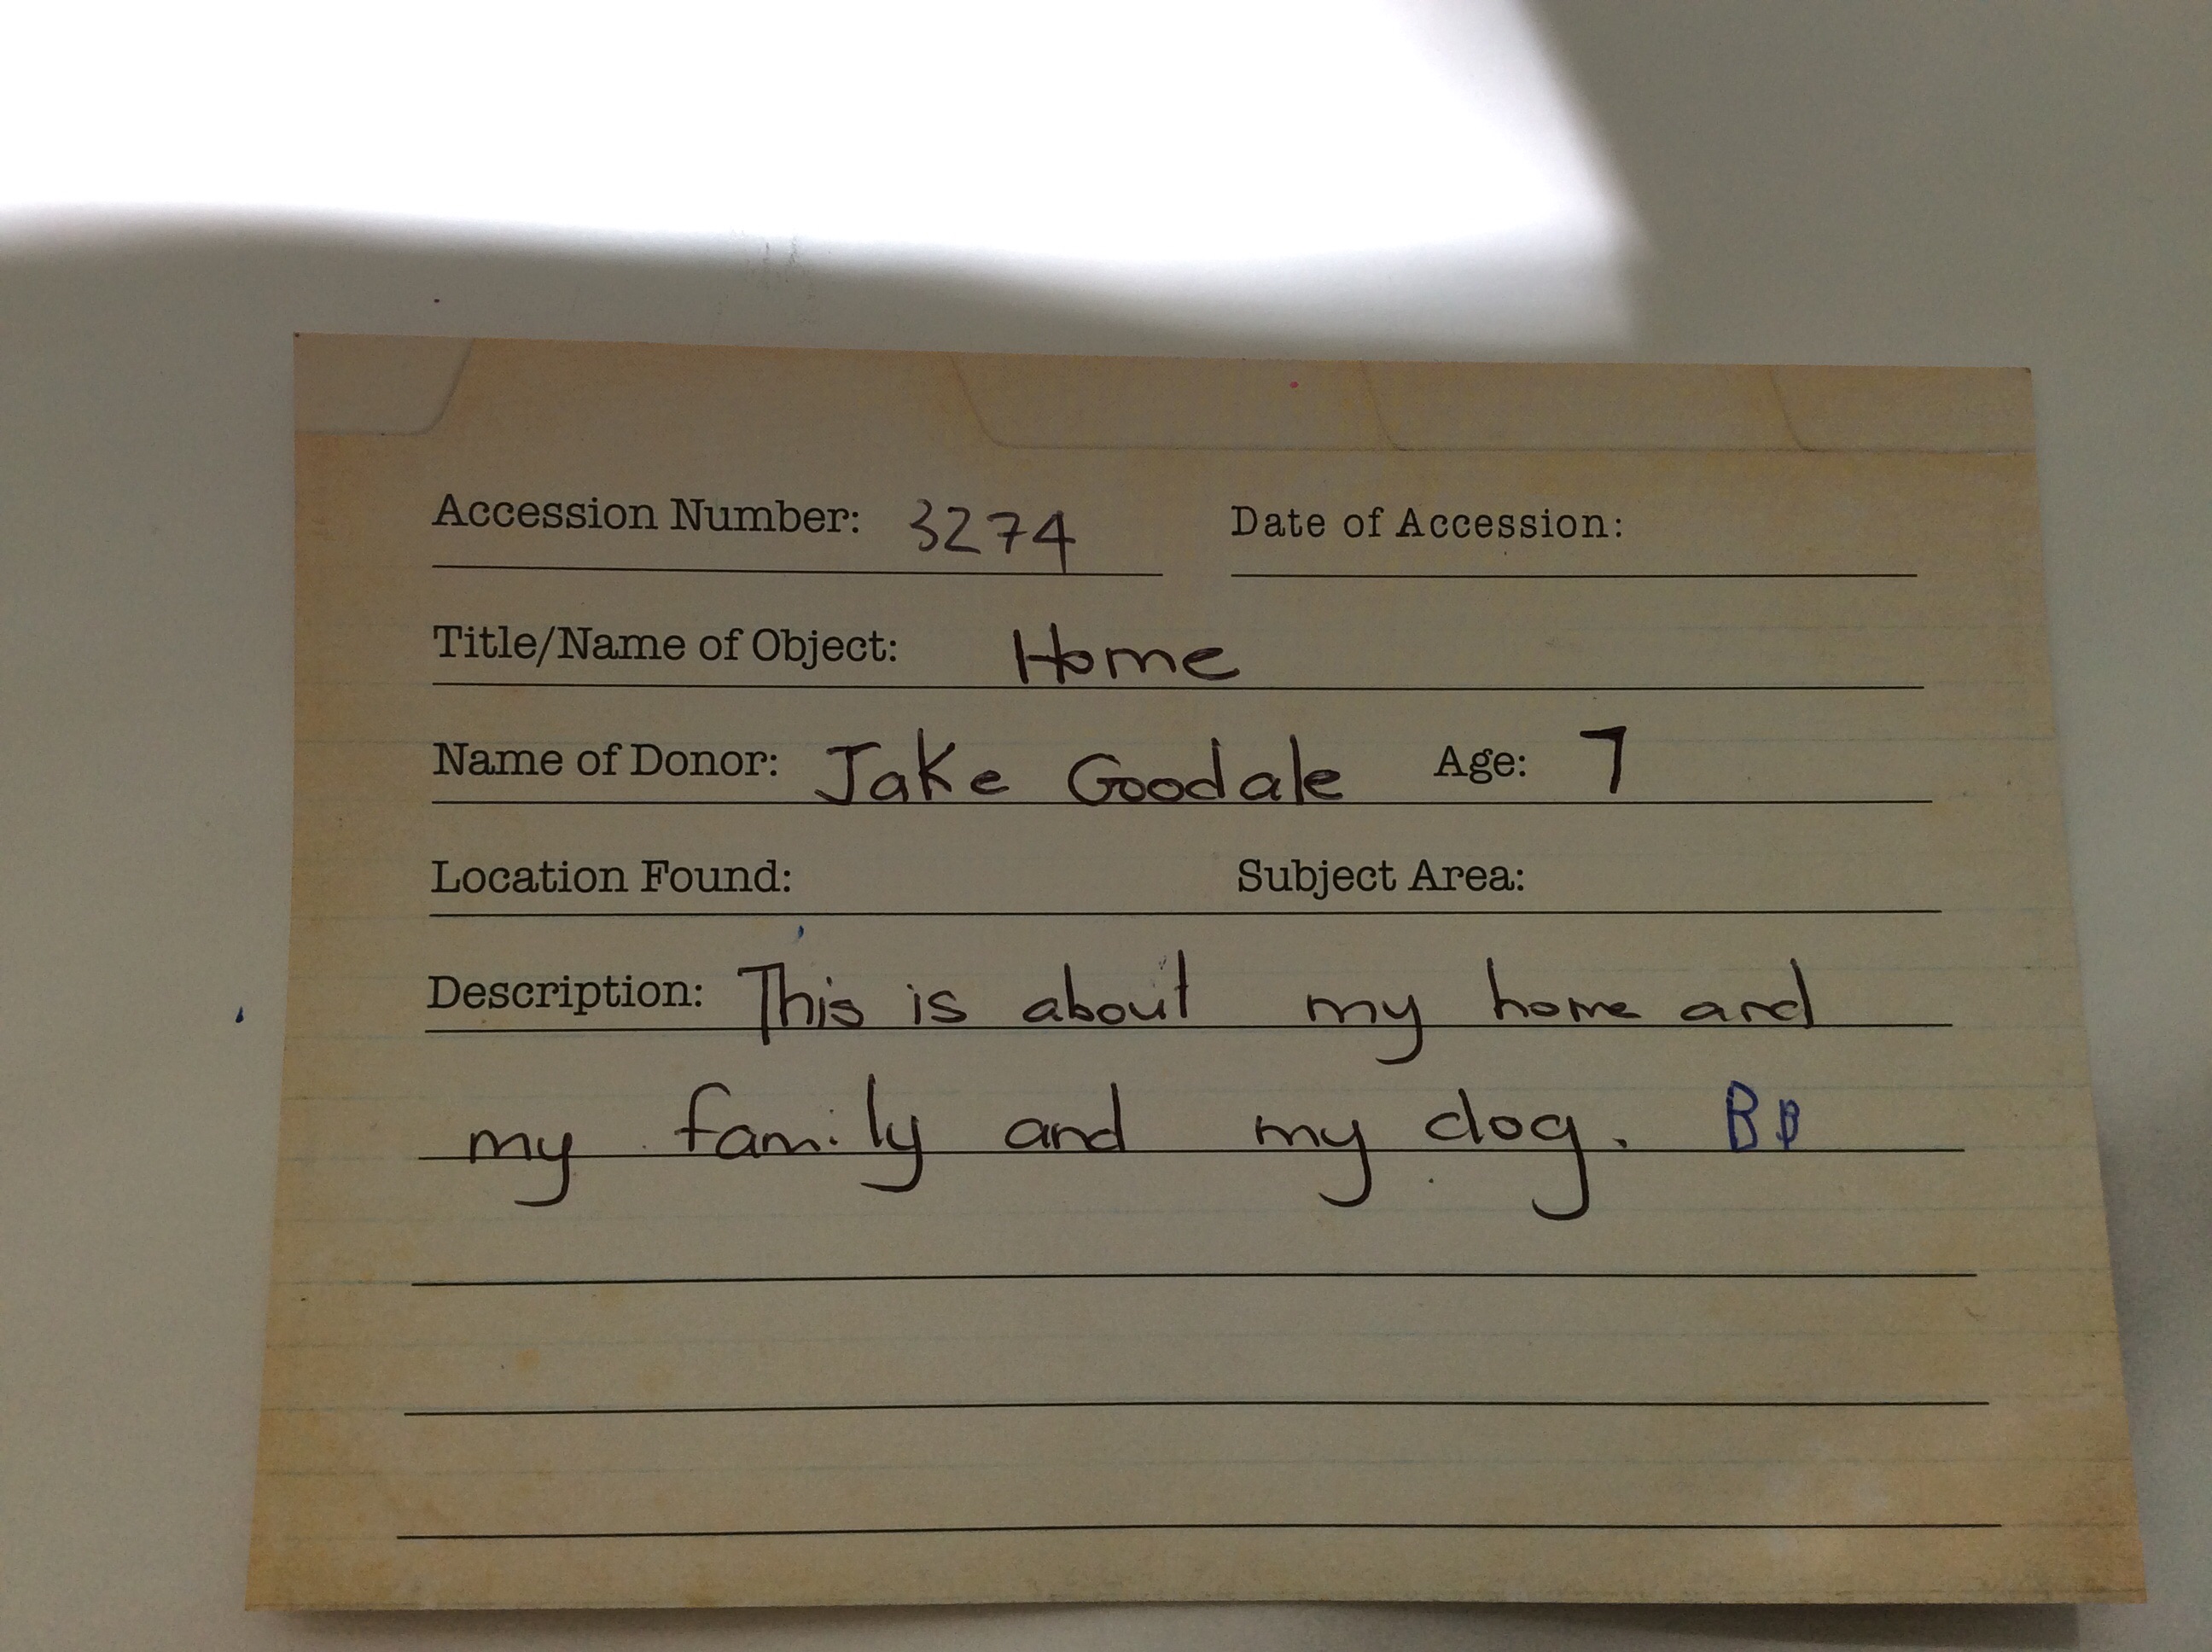 Accession Number: 3274 Date of Accession:
Title/Name of Object: Home
Name of Donor: Jake Goodale Age: 7
Location Found: Subject Area:
Description: This is about my home and
my family and my dog. BB